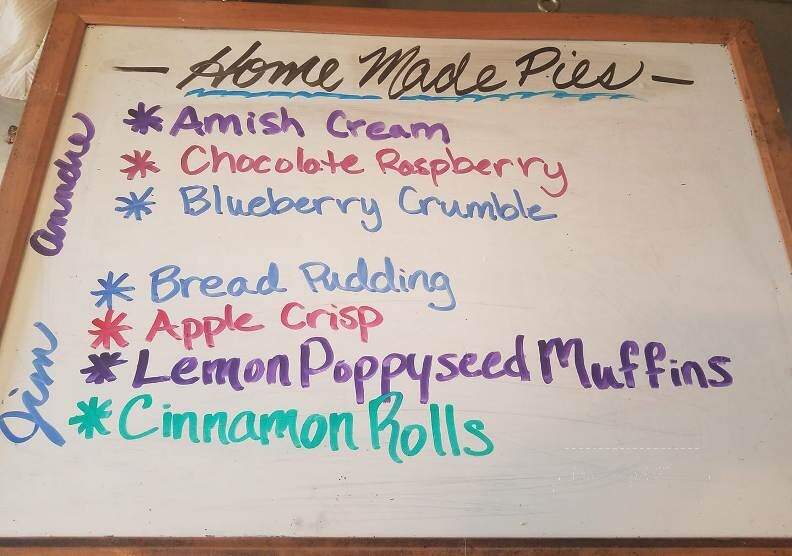 — Home Made Pies —
* Amish Cream
* Chocolate Raspberry
* Blueberry Crumble
* Bread Pudding
* Apple Crisp
* Lemon Poppyseed Muffins
* Cinnamon Rolls
Jim